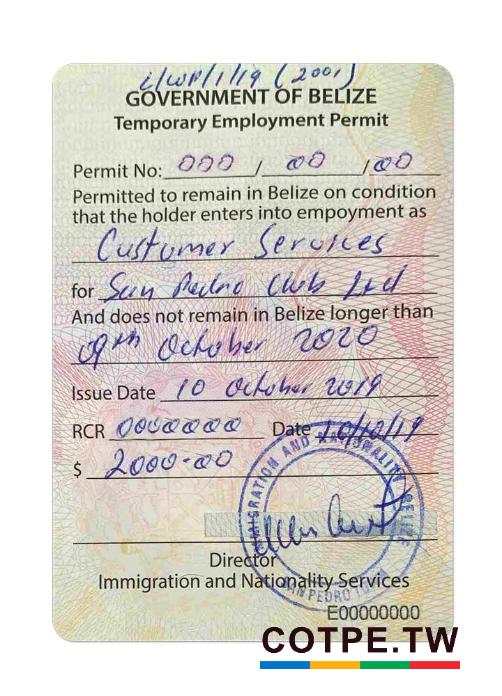 i/WP/1/19 (2001)
GOVERNMENT OF BELIZE
Temporary Employment Permit
Permit No: 000 / 00 / 00
Permitted to remain in Belize on condition
that the holder enters into empoyment as
Customer Services
for San Pedro Club Ltd
And does not remain in Belize longer than
09th October 2020
Issue Date 10 October 2019
RCR 0000000 Date 10/10/19
$ 2000-00
IMMIGRATION AND NATIONALITY BELIZE
SAN PEDRO TOWN
Director
Immigration and Nationality Services
E00000000
COTPE.TW